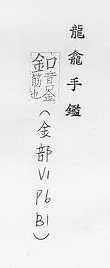 龍龕手鑑
釦音金筋也（金部V1P6B1）